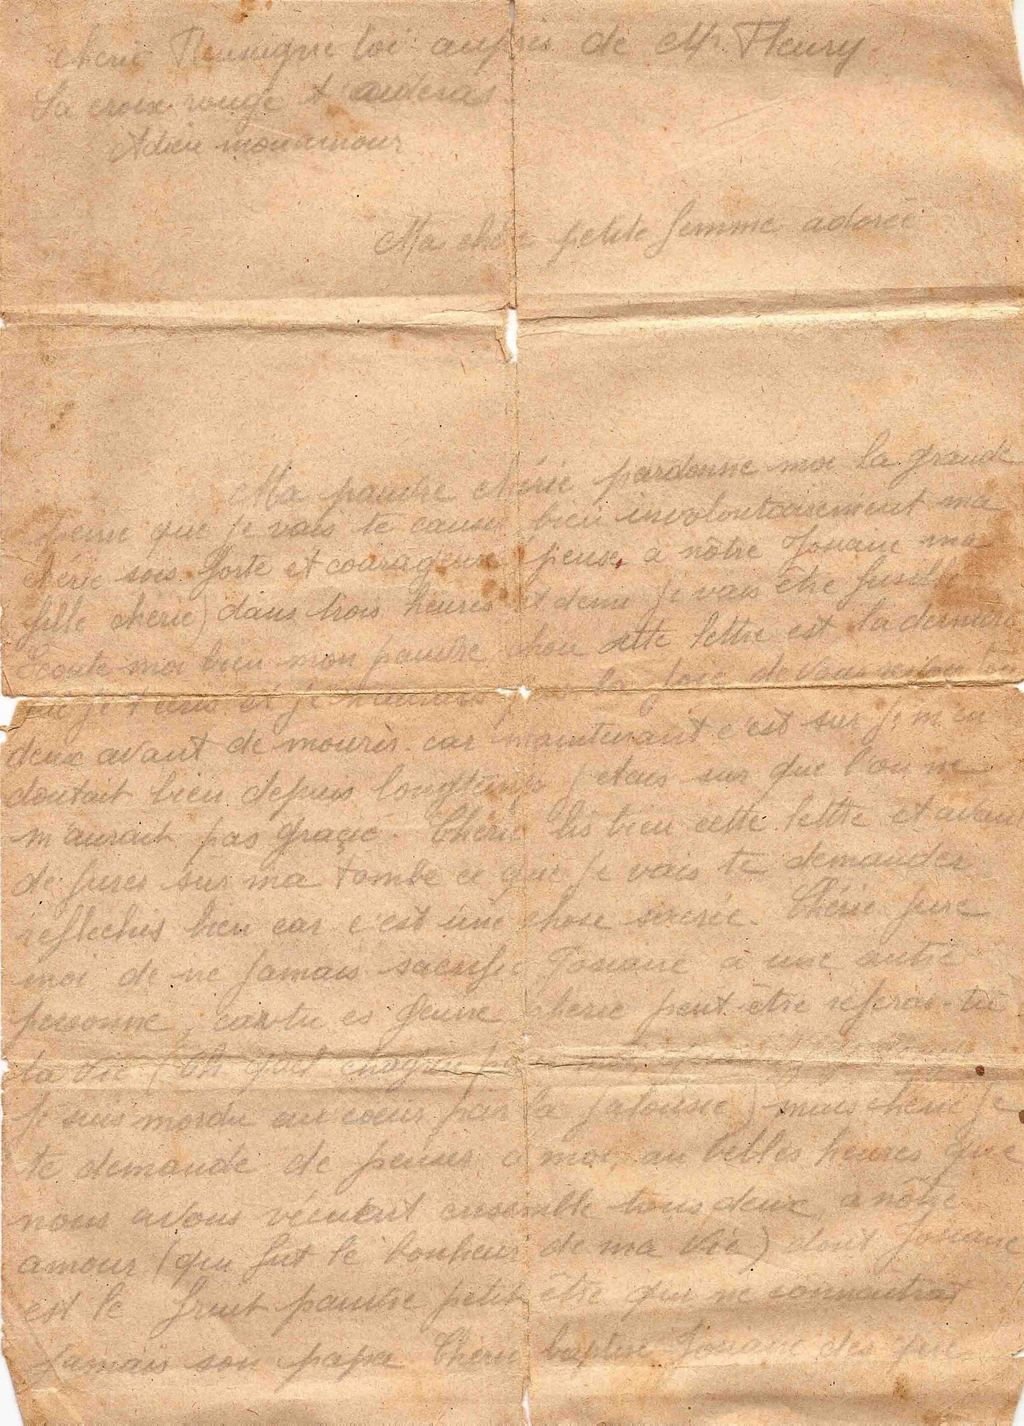 chérie Renseigne toi auprès de Mr Fleury.
La croix rouge t'aideras
Adieu mon amour
Ma chère petite femme adorée
Ma pauvre chérie pardonne moi la grande
peine que je vais te causer bien involontairement ma
chérie sois forte et courageuse pense, a nôtre Josiane ma
fille chérie) dans trois heures et demi je vais être fusillé
Ecoute moi bien mon pauvre chou cette lettre est la dernière
que je t'écris et je n'aurais pas la joie de vous revoir tous
deux avant de mourir. car maintenant c'est sur je m'en
doutait bien depuis longtemps j'etais sur que l'on ne
m'aurait pas graçié. Chérie lis bien cette lettre et avant
de jurer sur ma tombe ce que je vais te demander
réflechis bien car c'est une chose sacrée. Chérie jure
moi de ne jamais sacrifié Josiane a une autre
personne, car tu es jeune chérie peut être referas-tu
ta vie (Oh quel chagrin
je suis mordu au coeur par la jalousie) mais chérie je
te demande de penser a moi, au belles heures que
nous avons vécurent ensemble tous deux, a nôtre
amour (qui fut le bonheur de ma vie) dont Josiane
est le fruit pauvre petit être qui ne connaitrat
jamais son papa Chérie baptise Josiane des que